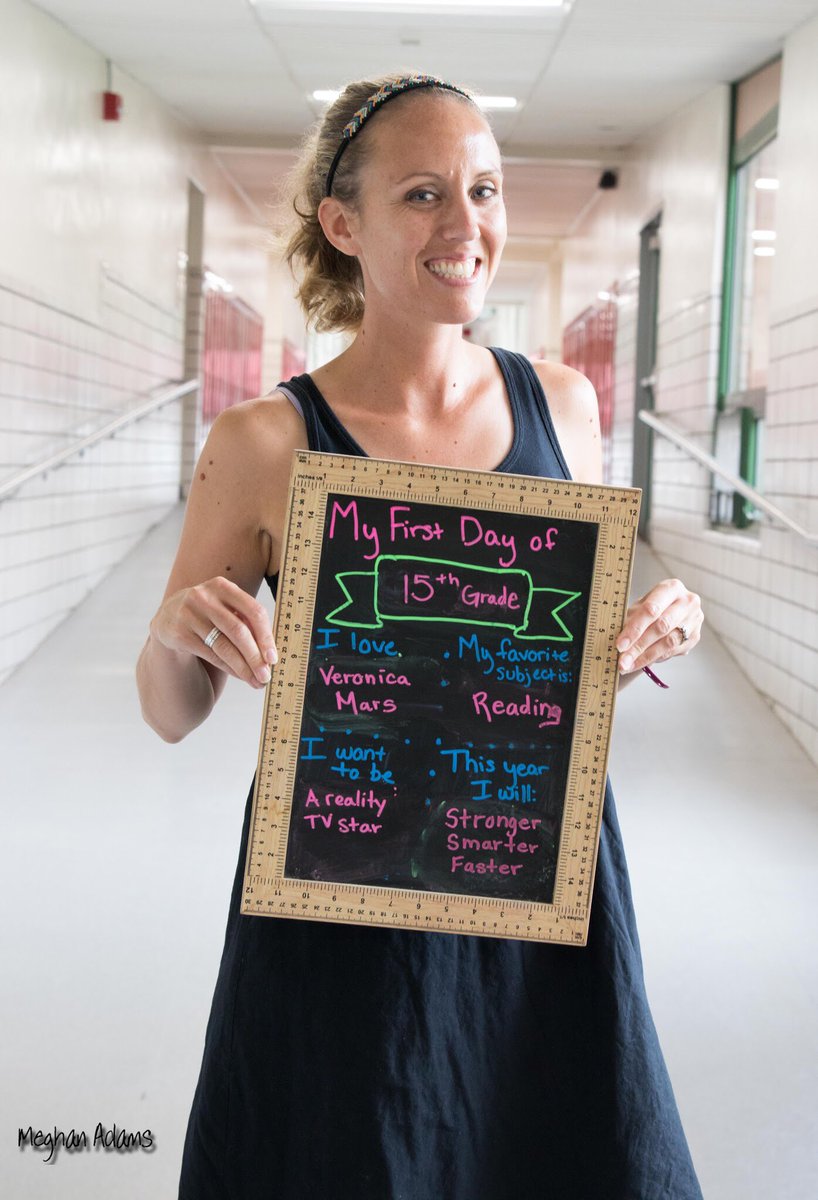 My First Day of
15th Grade
I love
Veronica
Mars
My favorite
subject is:
Reading
I want
to be
A reality
TV star
This year
I will:
Stronger
Smarter
Faster
Meghan Adams